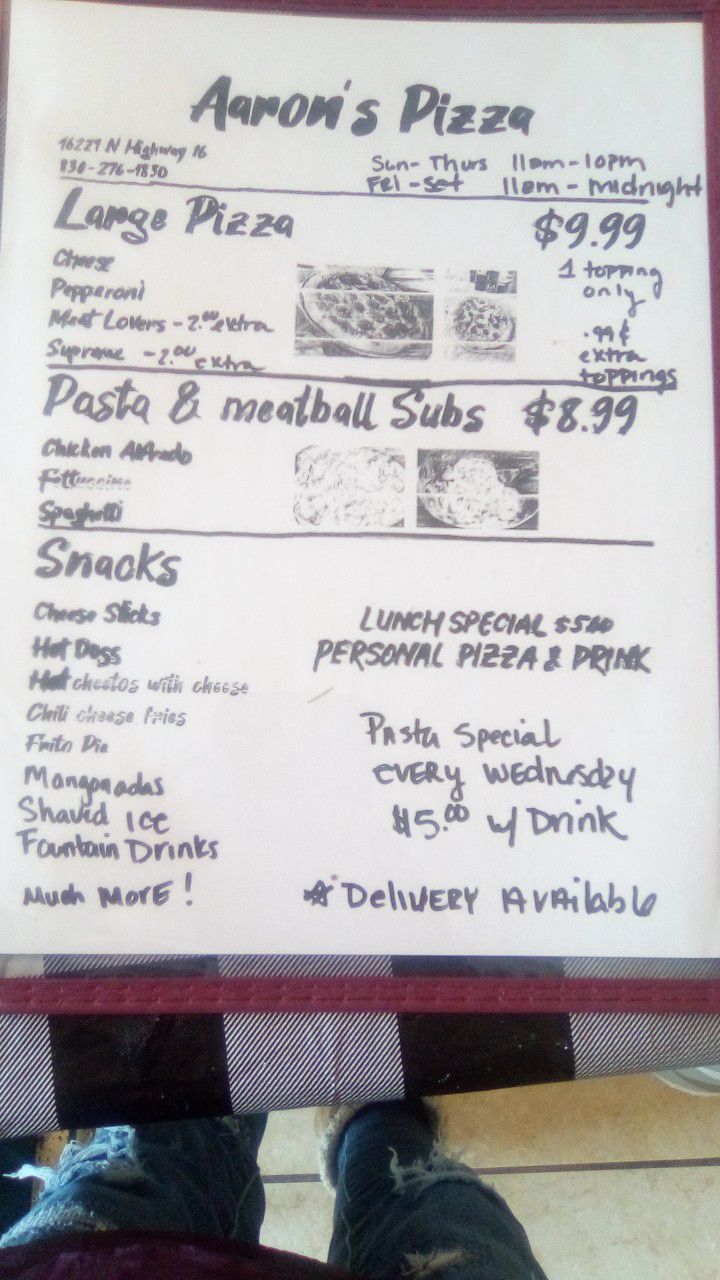 Aaron's Pizza
16221 N Highway 16
830-276-1850
Sun- Thurs 11am-10pm
Fri -Sat 11am - midnight
Large Pizza $9.99
Cheese
Pepperoni
Meat Lovers - 2.00 extra
Supreme - 2.00 extra
1 topping
only
.99¢
extra
toppings
Pasta & meatball Subs $8.99
Chicken Alfredo
Fettuccine
Spaghetti
Snacks
Cheese Sticks
Hot Dogs
Hot cheetos with cheese
Chili cheese fries
Frito Pie
Mangonadas
Shavid Ice
Fountain Drinks
Much MorE!
LUNCH SPECIAL $5.00
PERSONAL PIZZA & DRINK
Pasta Special
EVERY WEDnesday
$5.00 w/ Drink
☆ DeliVERY AVAilable